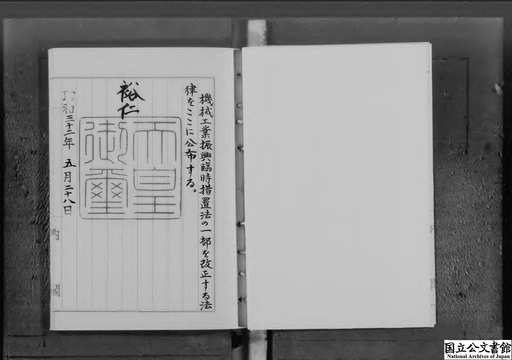 機械工業振興臨時措置法の一部を改正する法
律をここに公布する。
裕仁
天皇
御璽
昭和三十二年 五月二十八日
国立公文書館
National Archives of Japan